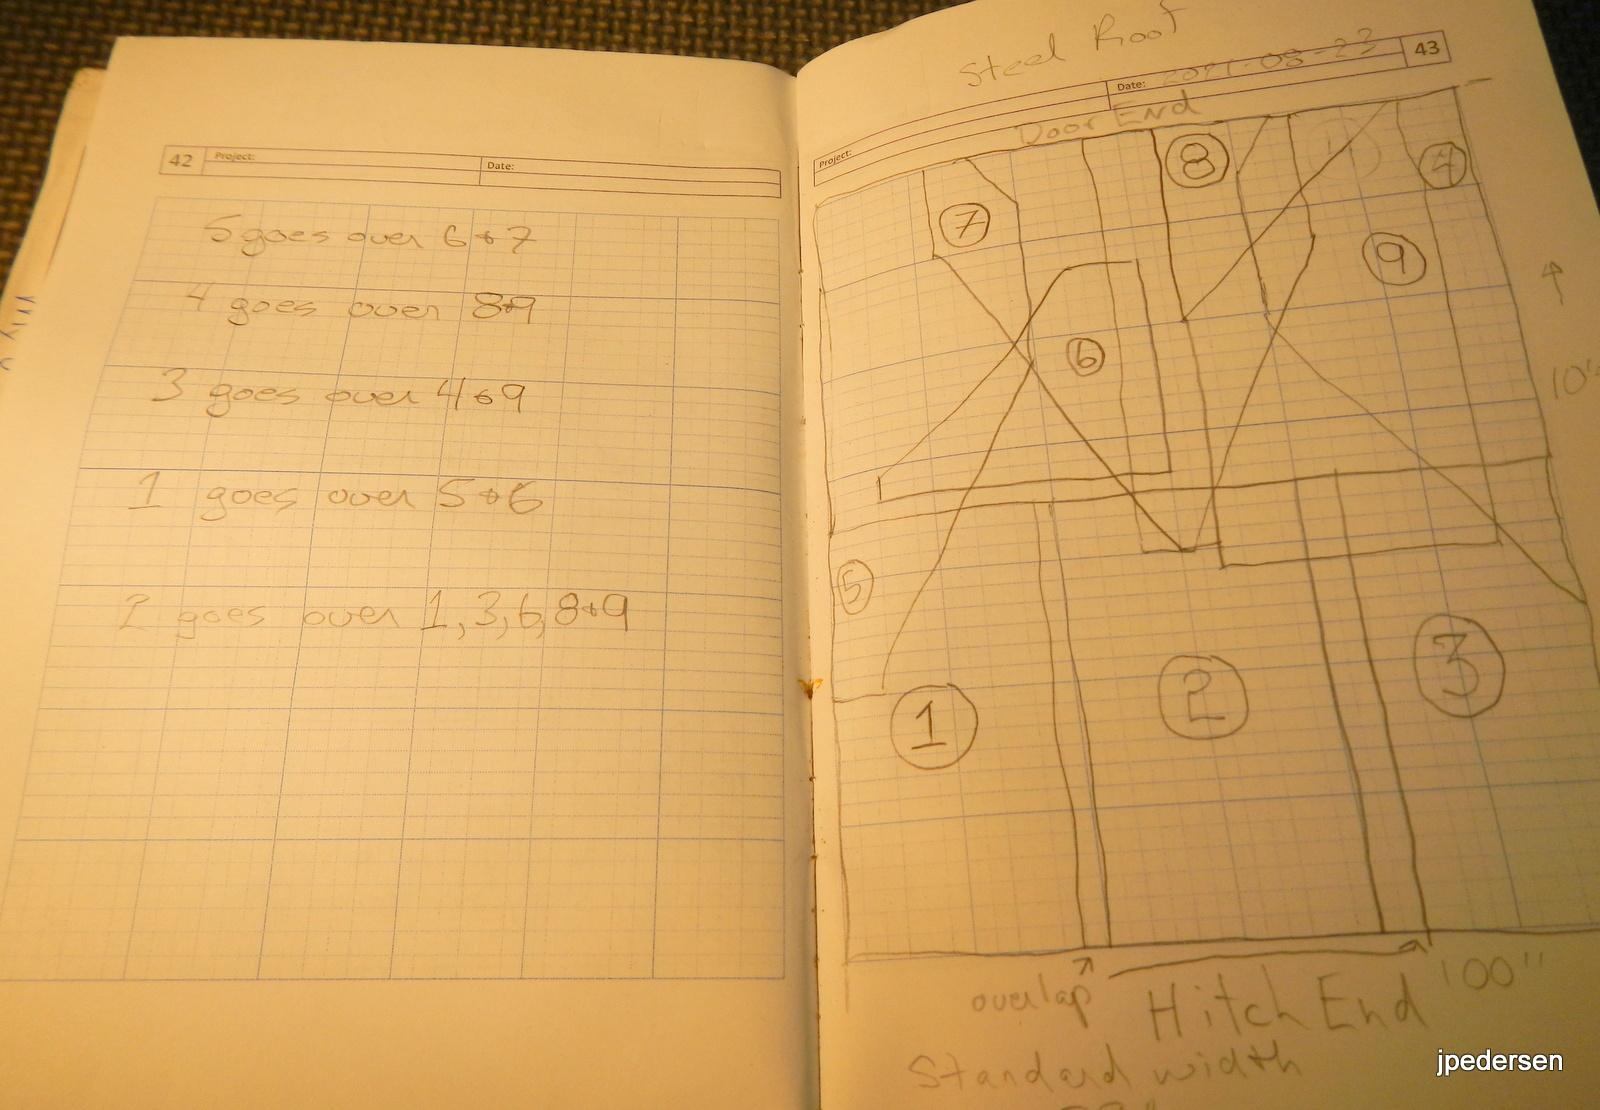 42
Project:
Date:
5 goes over 6 & 7
4 goes over 8 & 9
3 goes over 4 & 9
1 goes over 5 & 6
2 goes over 1, 3, 6, 8 & 9
Steel Roof
Project:
Date: 2021-08-23
43
Door End
7
8
4
9
6
5
1
2
3
overlap
Hitch End
100"
Standard width
jpedersen